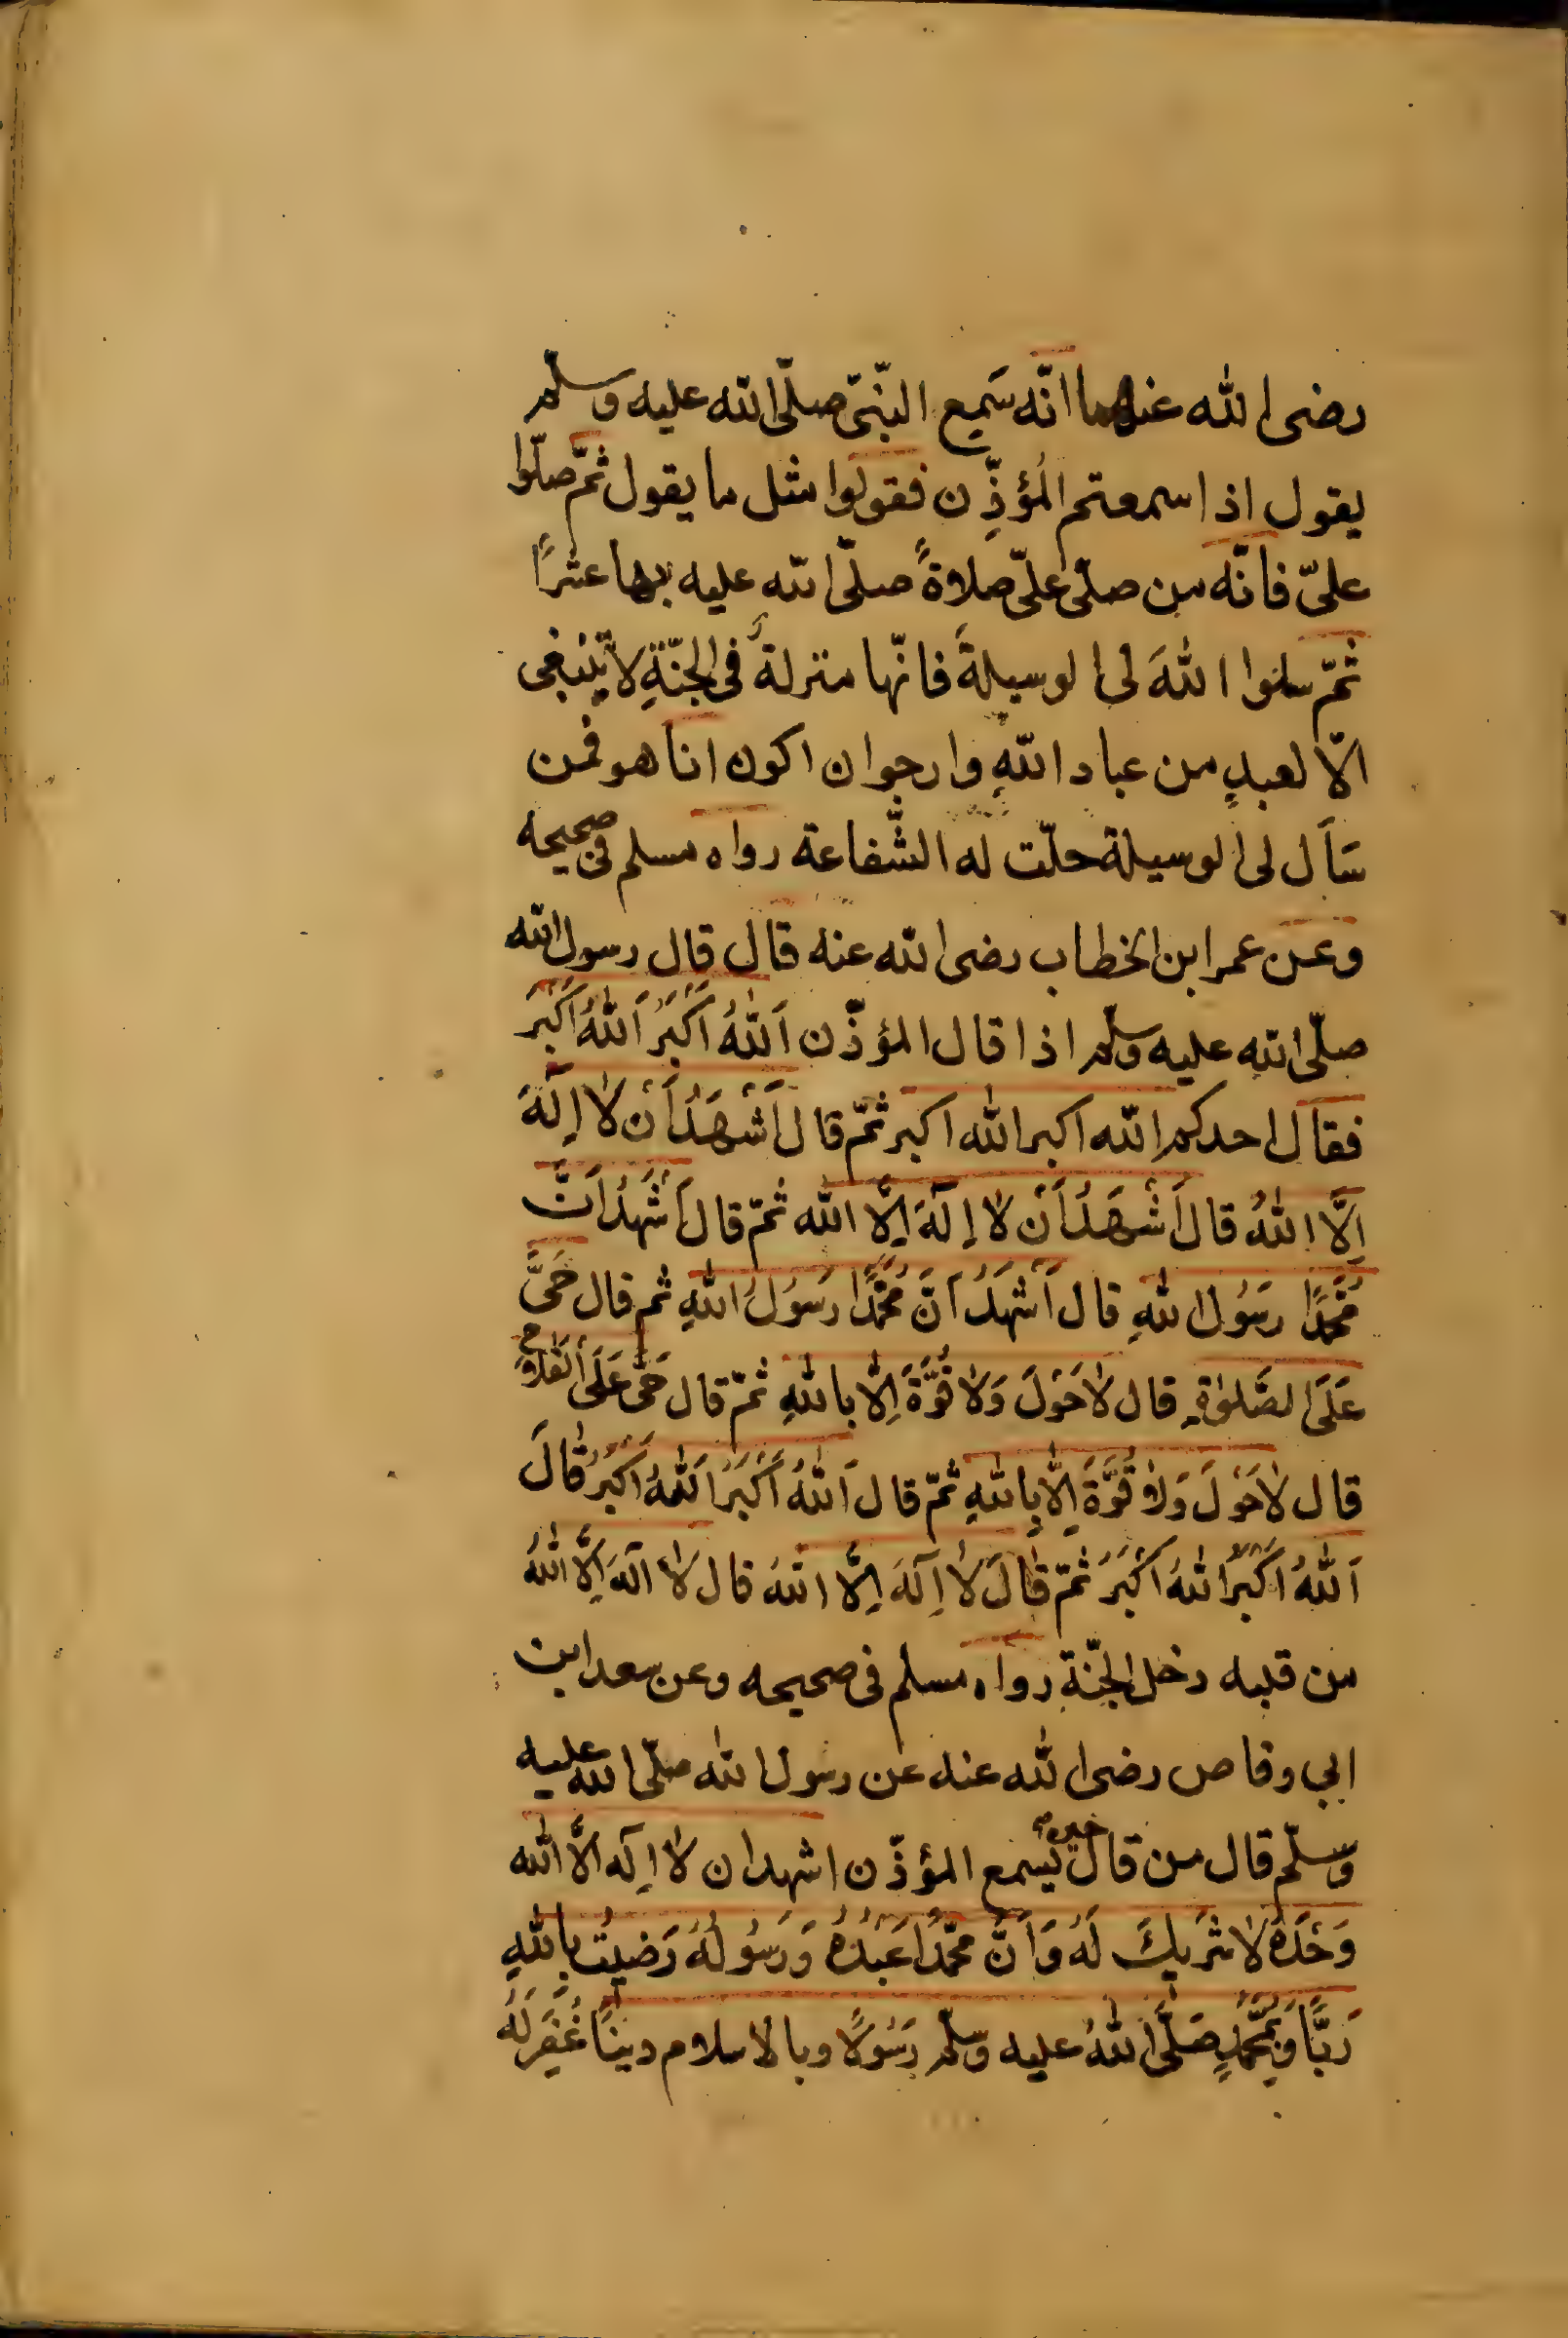 رضى الله عنهما انّه سَمِع النّبىّ صلّى الله عليه وسلّم
يقول اذا سمعتم المُؤذِّن فقولوا مثل ما يقول ثمّ صلّوا
علىّ فانّه من صلّى علىّ صلاةً صلّى الله عليه بها عشرًا
ثمّ سلوا اللهَ لى الوسيلةَ فانّها منزلةٌ فى الجنّةِ لا ينبغى
الّا لعبدٍ من عباد اللهِ وارجوا ان اكون انا هو فمن
سَأَل لى الوسيلة حلّت له الشّفاعة رواه مسلم فى صحيحه
وعن عمر ابن الخطاب رضى الله عنه قال قال رسول الله
صلّى الله عليه وسلّم اذا قال المؤذّن اَللهُ اَكْبَرُ اَللهُ اَكْبَرُ
فقال احدكم الله اكبر الله اكبر ثمّ قال اَشْهَدُ اَنْ لا اِلٰهَ
اِلَّا اللهُ قال اَشْهَدُ اَنْ لا اِلٰهَ اِلَّا الله ثمّ قال اَشْهَدُ اَنَّ
مُحَمَّدًا رَسُولُ اللهِ قال اَشْهَدُ اَنَّ مُحَمَّدًا رَسُولُ اللهِ ثم قال حَىَّ
عَلَى الصَّلٰوةِ قال لا حَوْلَ وَلا قُوَّةَ اِلَّا باللهِ ثمّ قال حَىَّ عَلَى الْفَلاحِ
قال لا حَوْلَ وَلا قُوَّةَ اِلَّا بِاللهِ ثمّ قال اَللهُ اَكْبَرُ اَللهُ اَكْبَرُ قَالَ
اَللهُ اَكْبَرُ اَللهُ اَكْبَرُ ثمّ قَالَ لا اِلٰهَ اِلَّا اللهُ قال لا اِلٰهَ اِلَّا اللهُ
من قلبه دخل الجنّة رواه مسلم فى صحيحه وعن سعد ابن
ابي وقاص رضى الله عنه عن رسول الله صلّى الله عليه
وسلّم قال من قال حين يسمع المؤذّن اشهد ان لا اِلٰه الَّا الله
وَحْدَهُ لا شَرِيكَ لَهُ وَاَنَّ محمّدًا عَبْدُهُ وَرَسُولُهُ رَضِيتُ بِاللهِ
رَبًّا وَبِمُحَمَّدٍ صَلَّى اللهُ عليه وسلّم رَسُولًا وبالاسلام دِينًا غُفِرَ لَهُ